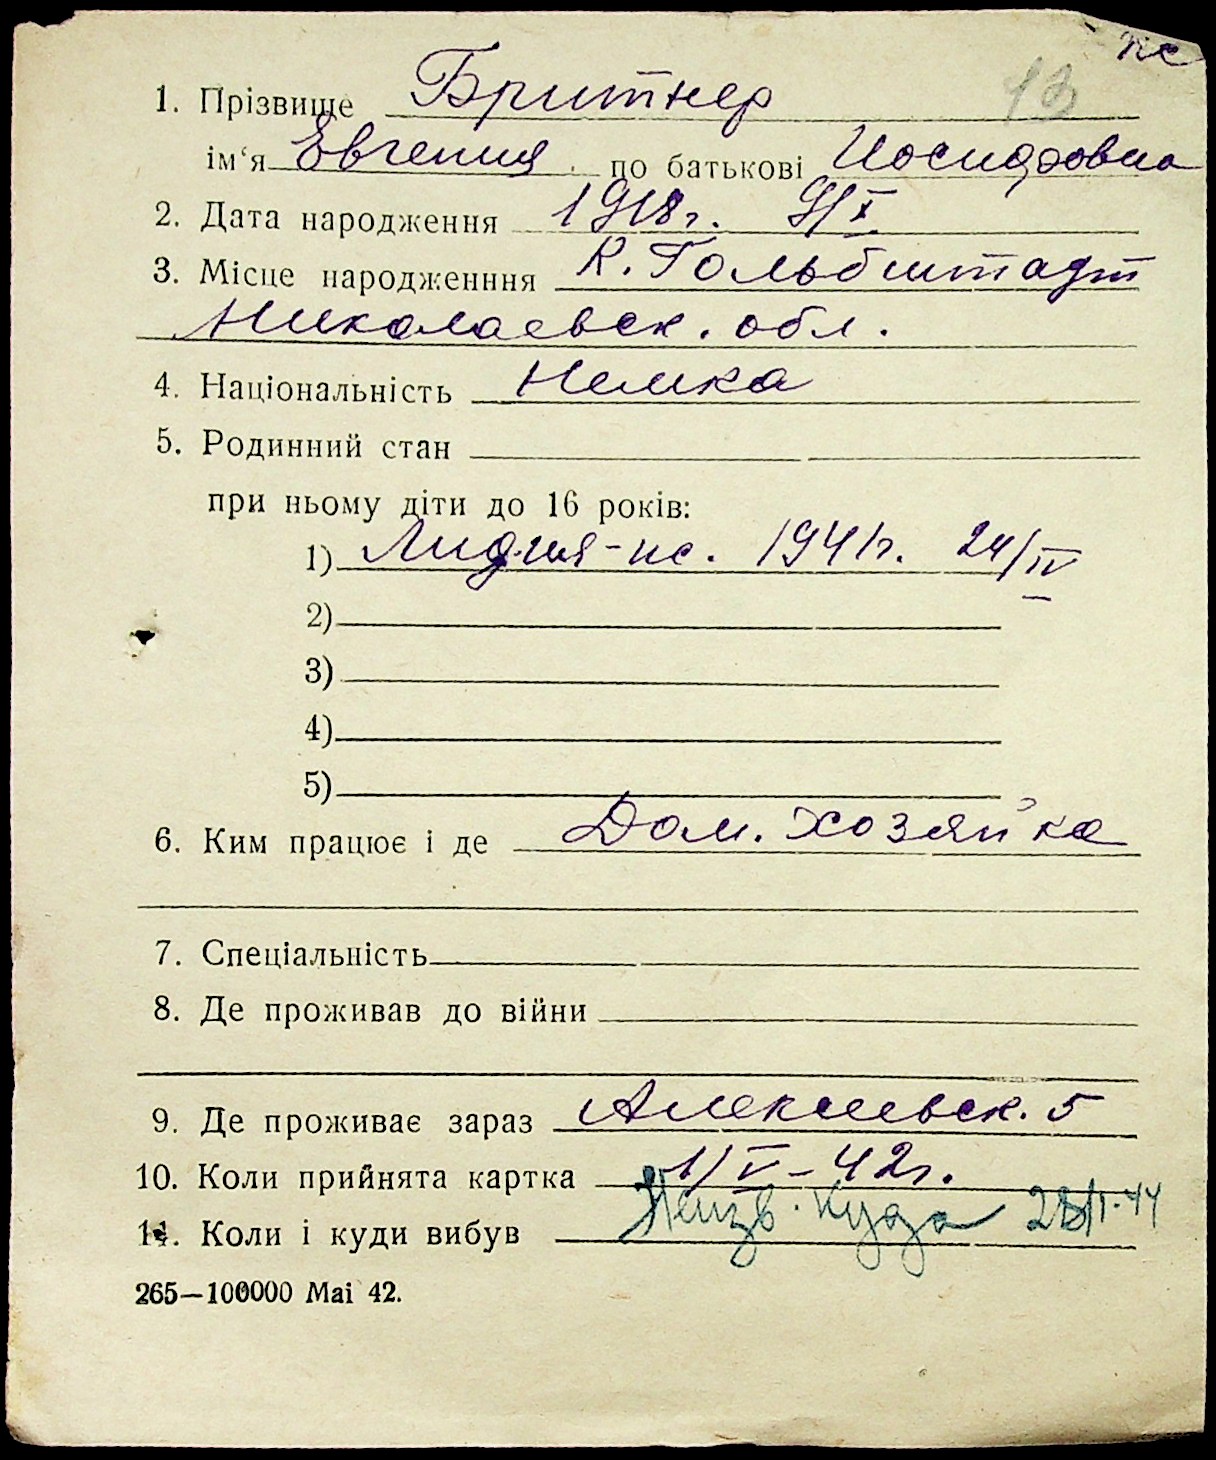 пс
13
1. Прізвище Бритнер
ім'я Евгения по батькові Иосифовна
2. Дата народження 1918г. 9/X
3. Місце народженння К. Гольбштадт
Николаевск. обл.
4. Національність Немка
5. Родинний стан
при ньому діти до 16 років:
1) Лидия-пс. 1941г. 24/IV
2)
3)
4)
5)
6. Ким працює і де Дом. хозяйка
7. Спеціальність
8. Де проживав до війни
9. Де проживає зараз Алексеевск. 5
10. Коли прийнята картка 1/V-42г.
11. Коли і куди вибув Неизв. куда
265—100000 Mai 42.